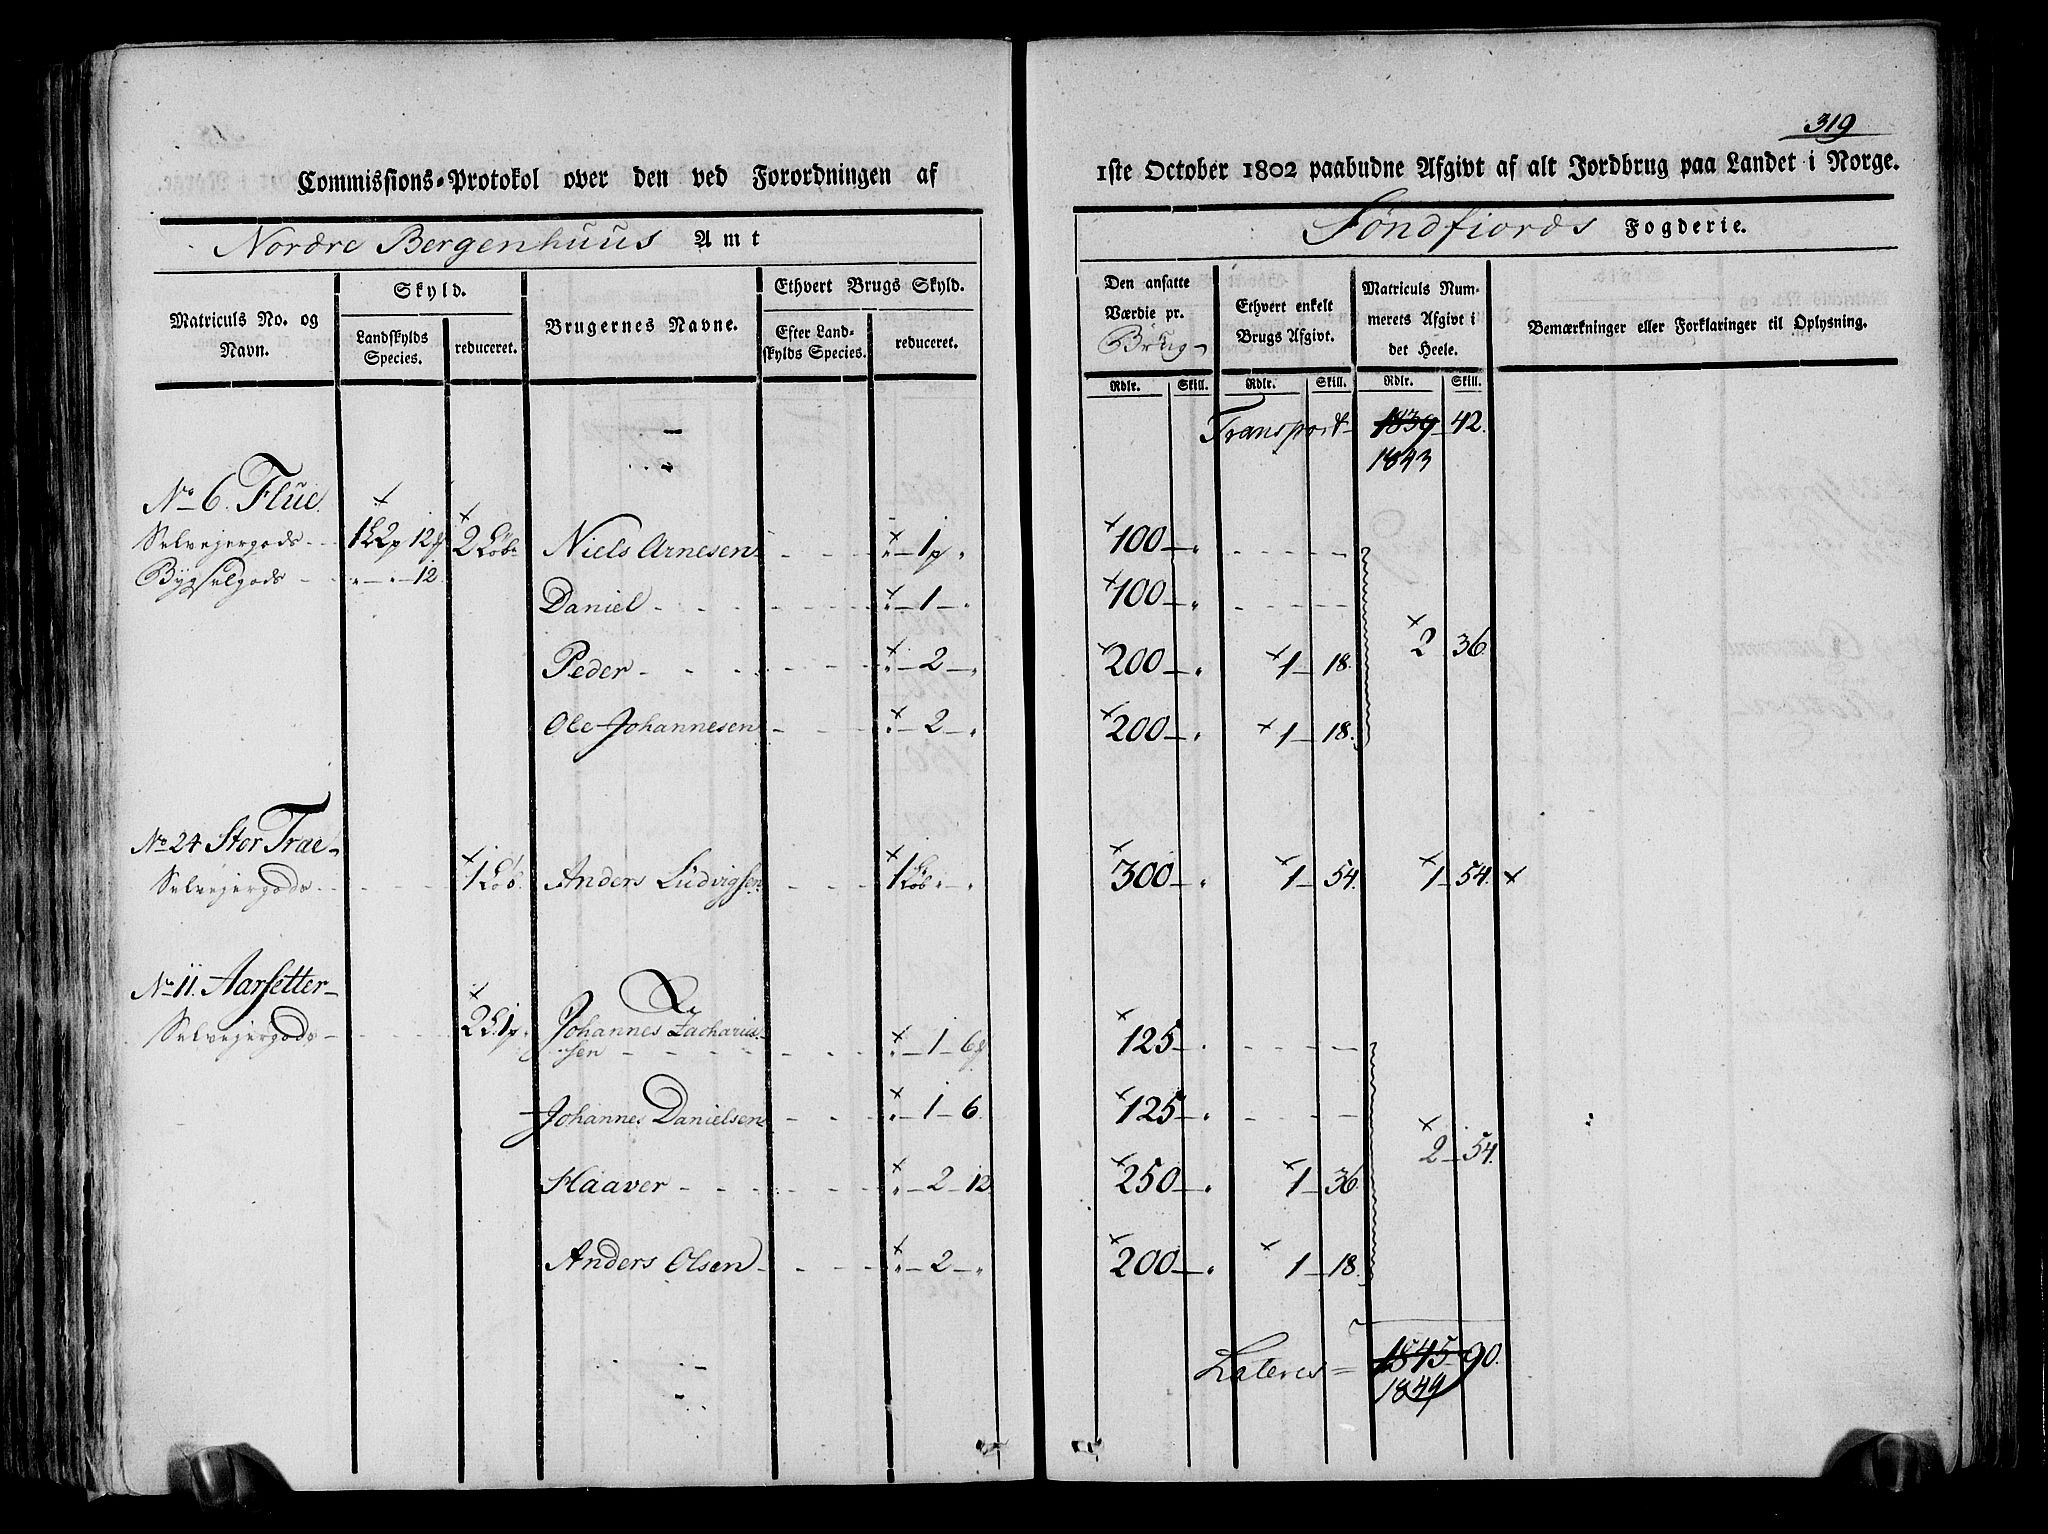 319
Commissions-Protokol over den ved Forordningen af 1ste October 1802 paabudne Afgivt af alt Jordbrug paa Landet i Norge.
Nordre Bergenhuus Amt
Søndfiords Fogderie.
Matriculs No. og Navn.
Skyld.
Landskylds Species.
reduceret.
Brugernes Navne.
Ethvert Brugs Skyld.
Efter Landskylds Species.
reduceret.
Den ansatte Værdie pr. Brug
Rdlr. Skill.
Ethvert enkelt Brugs Afgivt.
Rdlr. Skill.
Matriculs Nummerets Afgivt i det Heele.
Rdlr. Skill.
Bemærkninger eller Forklaringer til Oplysning.
Transport 1839 42.
1843
No 6. Flue
Selvejergods 2 Løbe Niels Arnesen 1 100
Bygselgods 12
Daniel 1 100
2 36
Peder 2 200 1 18
Ole Johannesen 2 200 1 18
No 24 Stor Trae
Selvejergods 1 Løb. Anders Ludvigsen 1 Løb 300 1 54. 1 54.
No 11. Aarsetter
Selvejergods Johannes Zachariassen 1 6 125
Johannes Danielsen 1 6 125
2 54.
Haaver 2 12 250 1 36
Anders Olsen 2 200 1 18
Lateres 1845 90.
1849